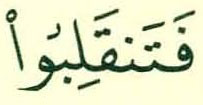 فَتَنقَلِبُواْ